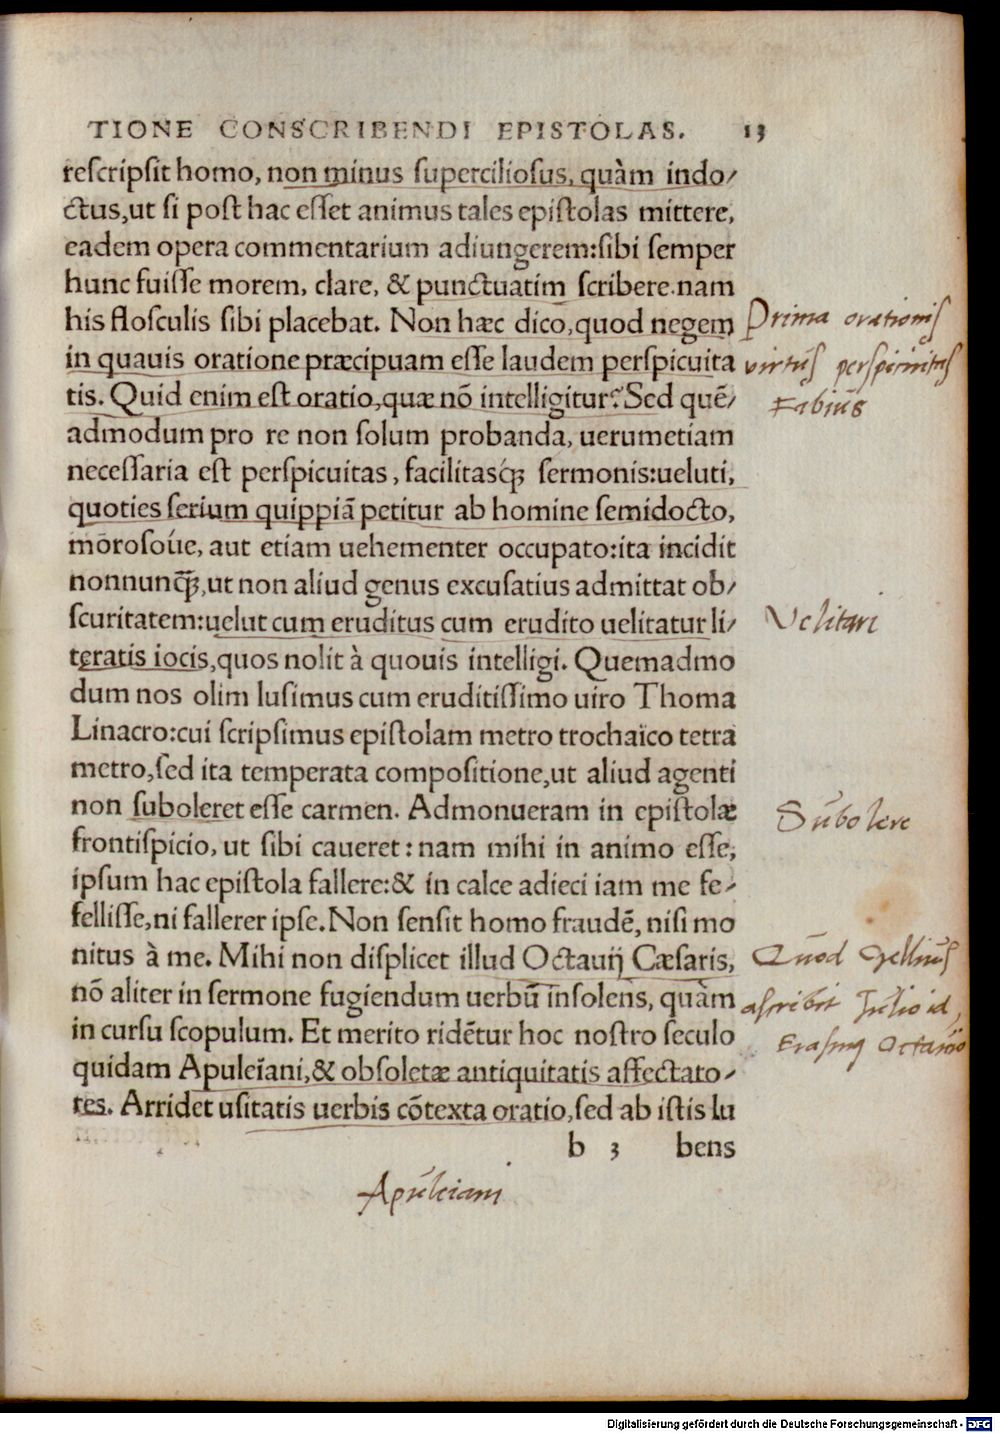 TIONE CONSCRIBENDI EPISTOLAS. 13
reſcripſit homo, non minus ſupercilioſus, quàm indo/
ctus,ut ſi poſt hac eſſet animus tales epiſtolas mittere,
eadem opera commentarium adiungerem:ſibi ſemper
hunc fuiſſe morem, clare, & punctuatim ſcribere.nam
his floſculis ſibi placebat. Non hæc dico,quod negem
in quauis oratione præcipuam eſſe laudem perſpicuita
tis. Quid enim eſt oratio,quæ nõ intelligitur? Sed quẽ/
admodum pro re non ſolum probanda, uerumetiam
neceſſaria eſt perſpicuitas, facilitasq́; ſermonis:ueluti,
quoties ſerium quippiã petitur ab homine ſemidocto,
moroſoúe, aut etiam uehementer occupato:ita incidit
nonnunq̃;,ut non aliud genus excuſatius admittat ob/
ſcuritatem:uelut cum eruditus cum erudito uelitatur li/
teratis iocis,quos nolit à quouis intelligi. Quemadmo
dum nos olim luſimus cum eruditiſſimo uiro Thoma
Linacro:cui ſcripſimus epiſtolam metro trochaïco tetra
metro,ſed ita temperata compoſitione,ut aliud agenti
non ſuboleret eſſe carmen. Admonueram in epiſtolæ
frontiſpicio, ut ſibi caueret: nam mihi in animo eſſe,
ipſum hac epiſtola fallere:& in calce adieci iam me fe/
felliſſe,ni fallerer ipſe. Non ſenſit homo fraudẽ, niſi mo
nitus à me. Mihi non diſplicet illud Octauij Cæſaris,
nõ aliter in ſermone fugiendum uerbũ inſolens, quàm
in curſu ſcopulum. Et merito ridẽtur hoc noſtro ſeculo
quidam Apuleiani,& obſoletæ antiquitatis affectato/
res. Arridet uſitatis uerbis cõtexta oratio,ſed ab iſtis lu
b 3 bens
Prima orationis
virtus perspicuitas
Fabius
Velitari
Subolere
Quod Gellius
ascribit Iulio id,
Erasmus Octauio
Apuleiani
Digitalisierung gefördert durch die Deutsche Forschungsgemeinschaft - DFG